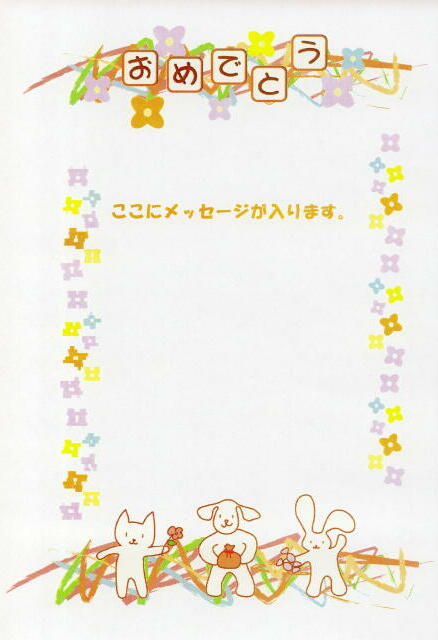 おめでとう
ここにメッセージが入ります。